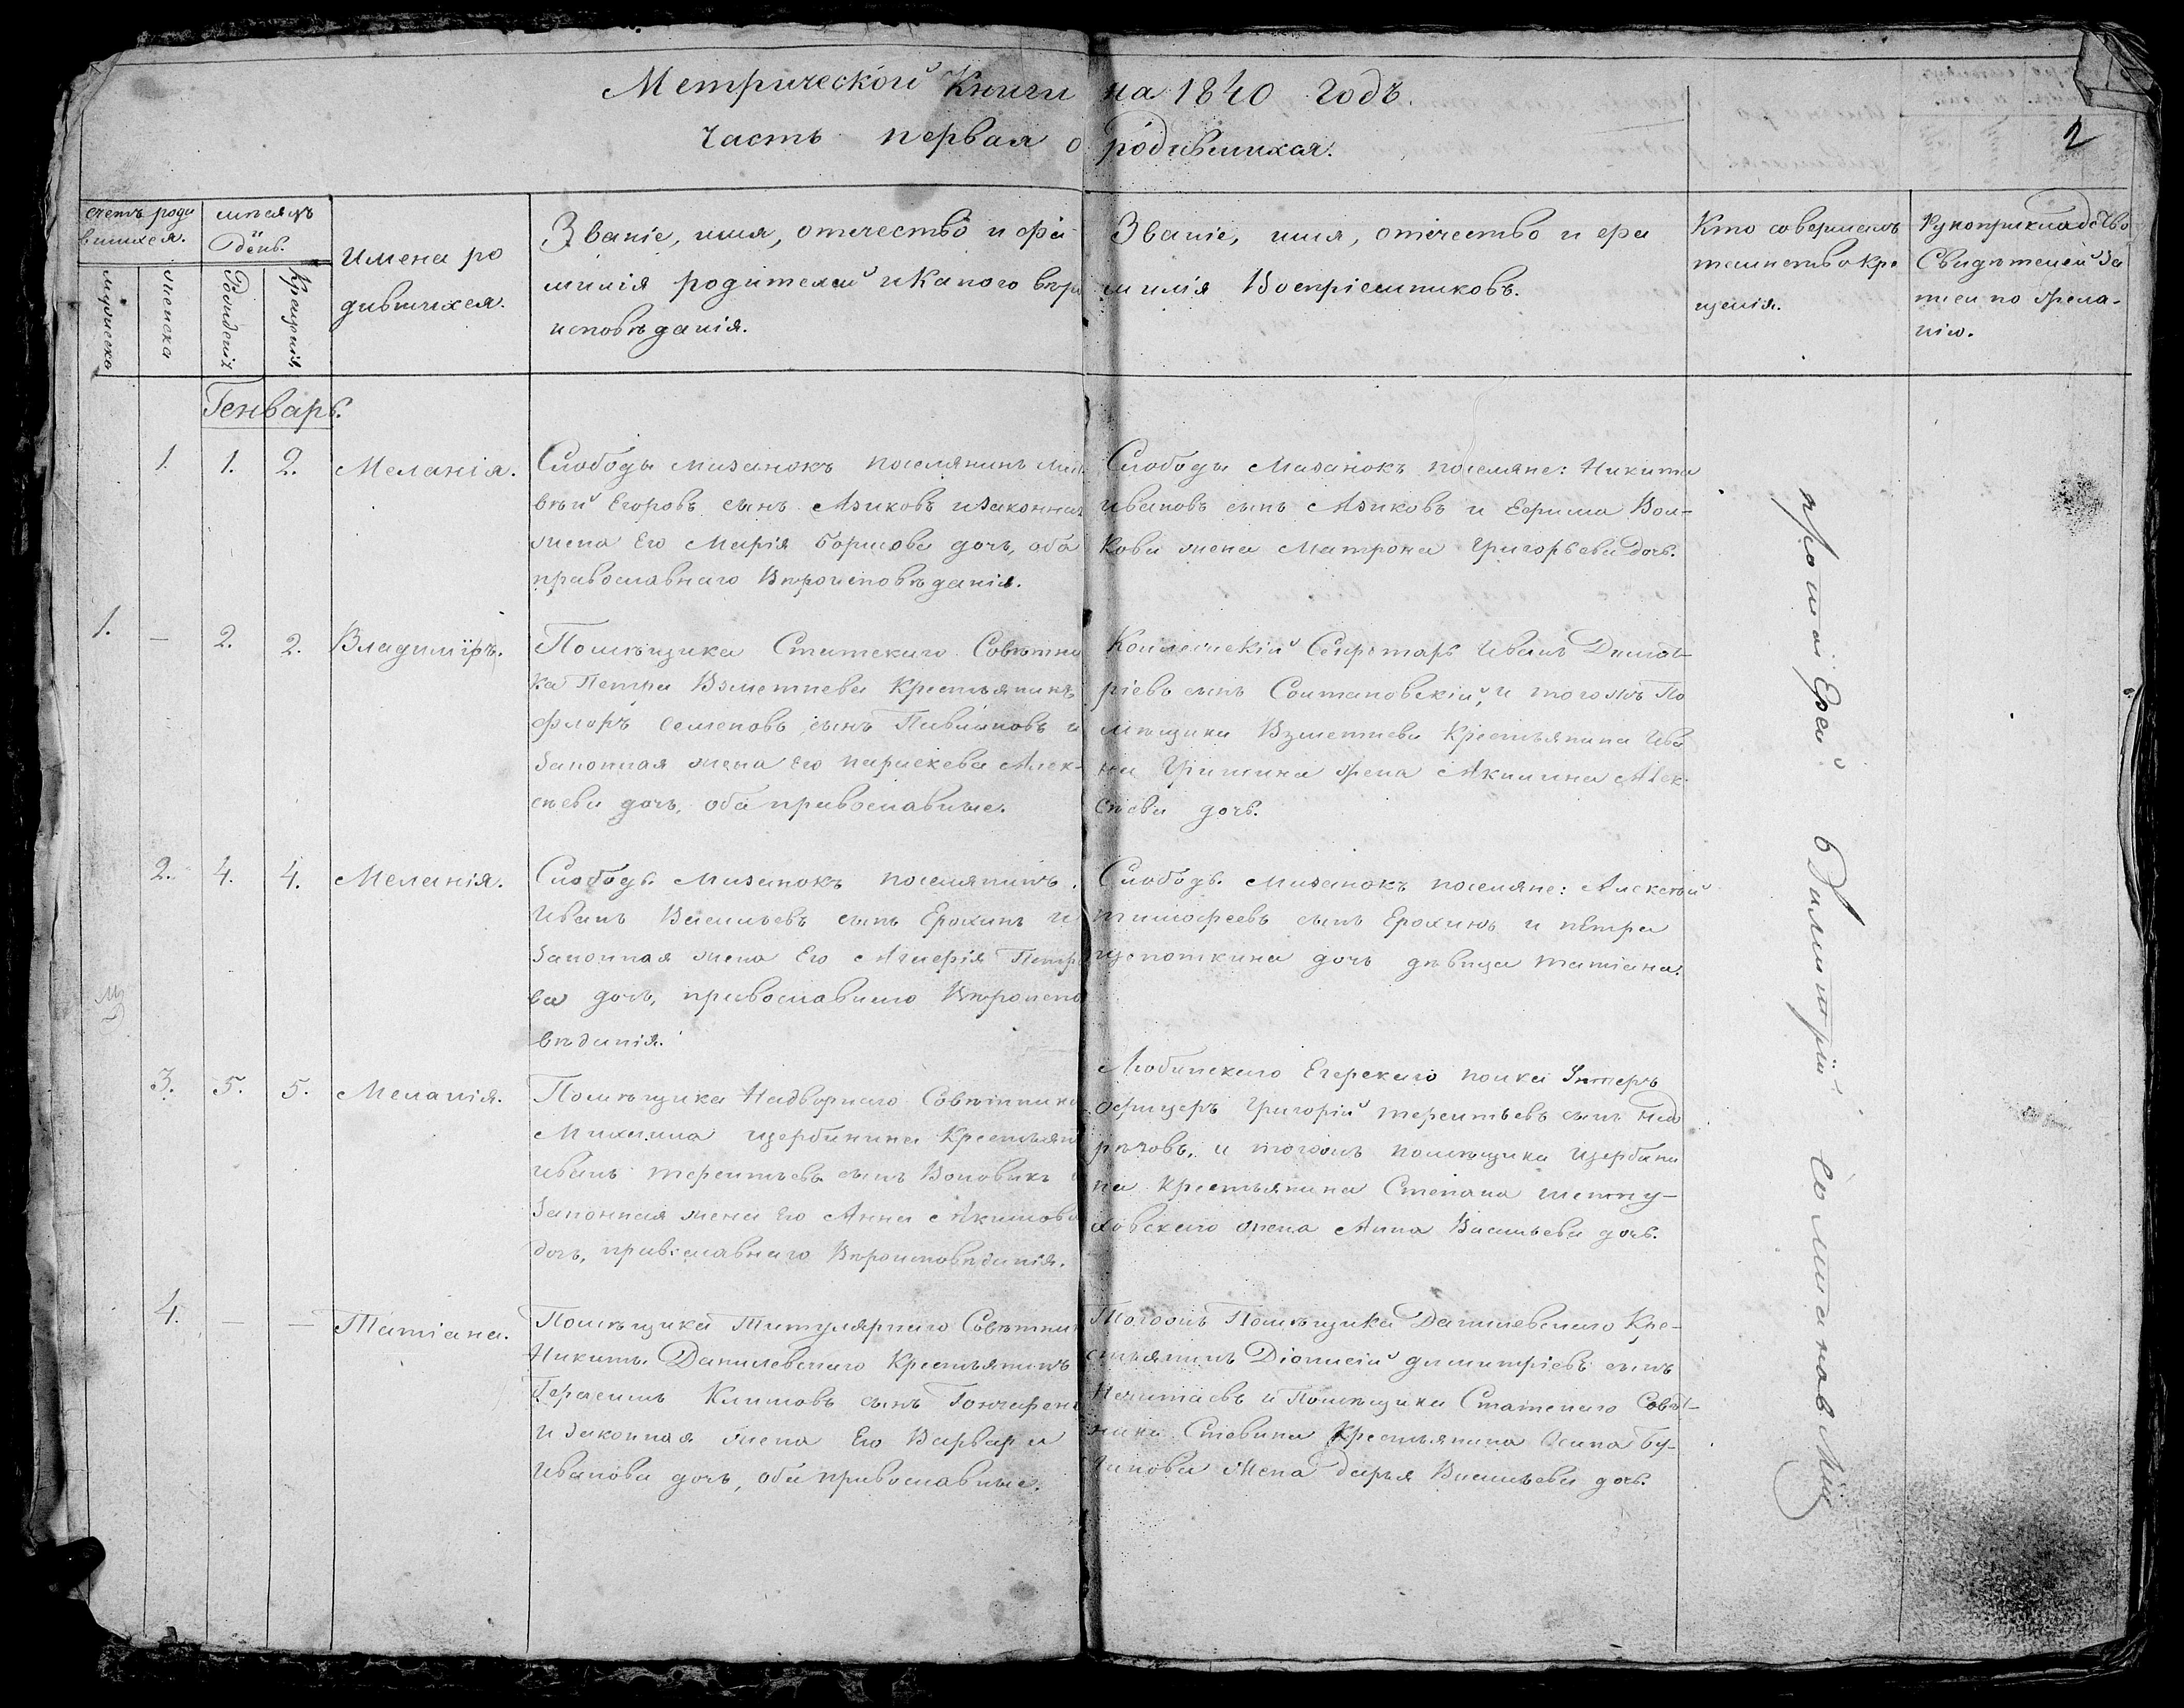 Метрической Книги на 1840 годъ.
Часть первая о родившихся.
2
счетъ роди
вшихся.
мужеска
женска
мѣсяцъ
и день.
Рожденія
Крещенія
Имена ро
дившихся.
Званіе, имя, отечество и фа
милія родителей и Какого вѣро
исповѣданія.
Званіе, имя, отечество и фа
милія Воспріемниковъ.
Кто совершалъ
таинство Кре
щенія.
Рукоприкладство
Свидѣтелей За
писи по Жела-
нію.
Генварь.
1. 1. 2. Меланія.
Слободы Мизанокъ поселянинъ
Егоровъ сынъ Азиковъ и законная
жена Его Марія Борисова дочь, оба
православнаго Вѣроисповѣданія.
Слободы Мазанокъ поселяне: Никита
Ивановъ сынъ Азиковъ и Ефрима Вол-
кова жена Матрона Григорьева дочь.
1. — 2. 2. Владиміръ.
Помѣщика Статскаго Совѣтни
ка Петра Взметнева Крестьянинъ
Флоръ Семеновъ сынъ и
Законная жена Его Параскева Алек-
сѣева дочь, оба православные.
Секретарь Иванъ Димит-
ріевъ сынъ и тогожъ По
мѣщика Взметнева Крестьянина Ива
на Гришина Жена Акилина Алек-
сѣева дочь.
2. 4. 4. Меланія.
Слободы Мизанокъ поселянинъ
Иванъ Васильевъ сынъ Ерохинъ и
Законная жена Его Петро
ва дочь, православнаго Вѣроиспо
вѣданія.
Слободы Мизанокъ поселяне: Алексѣй
Тимофеевъ сынъ Ерохинъ и Петра
Щепоткина дочь дѣвица Татіана.
3. 5. 5. Меланія.
Помѣщика Надворнаго Совѣтника
Михаила Щербинина Крестьянин
Иванъ Терентьевъ сынъ Воловикъ
Законная жена Его Анна Акимова
дочь, православнаго Вѣроисповѣданія.
Егерскаго полка Унтеръ
Офицеръ Григорій Терентьевъ сынъ
и тогожъ помѣщика Щербини
на Крестьянина Степана
жена Анна Васильева дочь.
4. — — Татіана.
Помѣщика Титулярнаго Совѣтник
Никиты Данилевскаго Крестьянинъ
Герасимъ Климовъ сынъ Гончарен
и Законная жена Его Варвара
Иванова дочь, оба православные.
Тогожъ Помѣщика Данилевскаго Кре-
стьянинъ Діонисій Димитріевъ сынъ
и Помѣщика Статскаго Совѣт-
ника Крестьянина Осипа
Жена Дарья Васильева дочь.